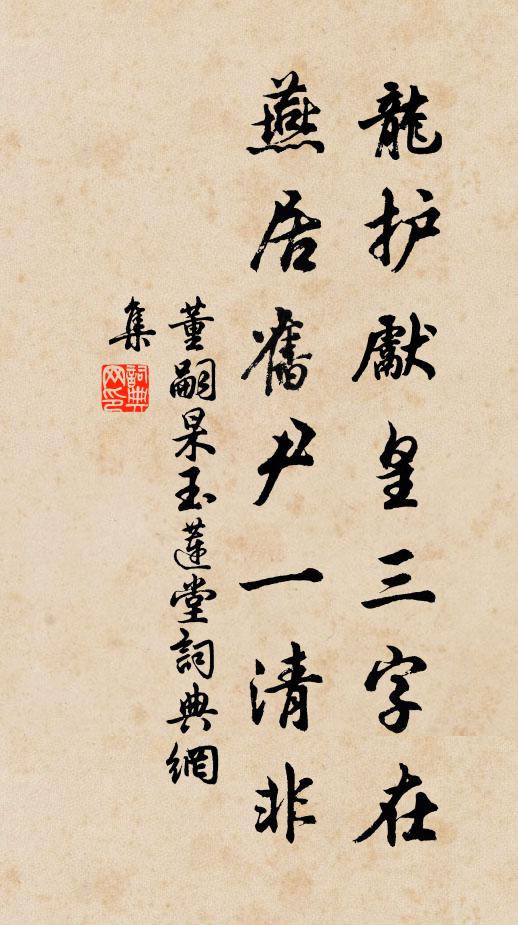 龍护獻皇三字在
燕居舊尹一清非
董嗣杲玉蓮堂詞典網
集
詞典
网印